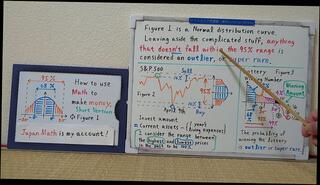 Figure 1 is a Normal distribution curve.
Leaving aside the complicated stuff, anything
that doesn't fall within the 95% range is
considered an outlier, or super rare.
S&P 500
Sell
Figure 2
Buy
Lottery
Winning Number
Winning Amount
Invest amount
= Current assets - (1 year living expenses)
I consider the range between
the highest and lowest prices
in the past to be
The probability of
winning the lottery
is outlier or super rare.
95%
68%
-2σ
2σ
How to use
Math to
make money,
Short Version
Figure 1
Japan Math is my account!